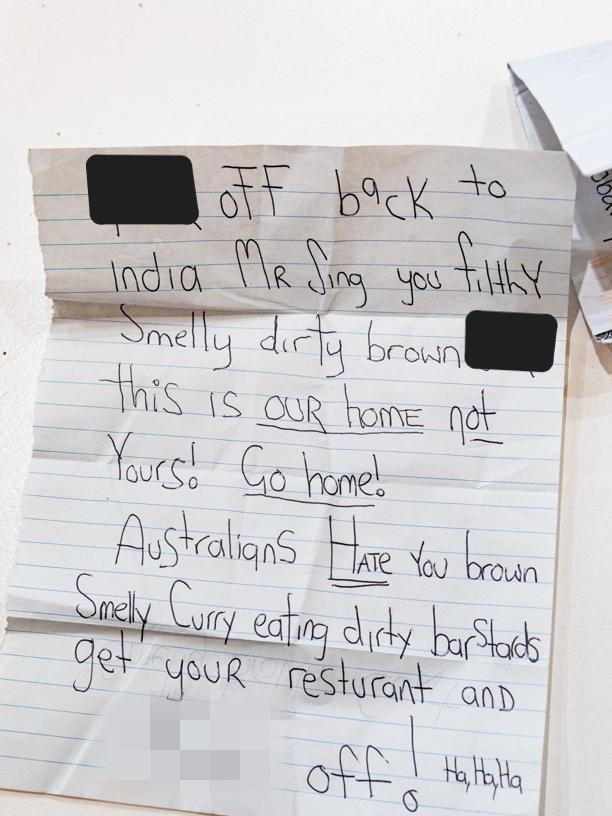 off back to
india Mr Sing you filthy
Smelly dirty brown
this is our home not
Yours! Go home!
Australians HATE You brown
Smelly Curry eating dirty barstads
get your resturant and
off! Ha,Ha,Ha